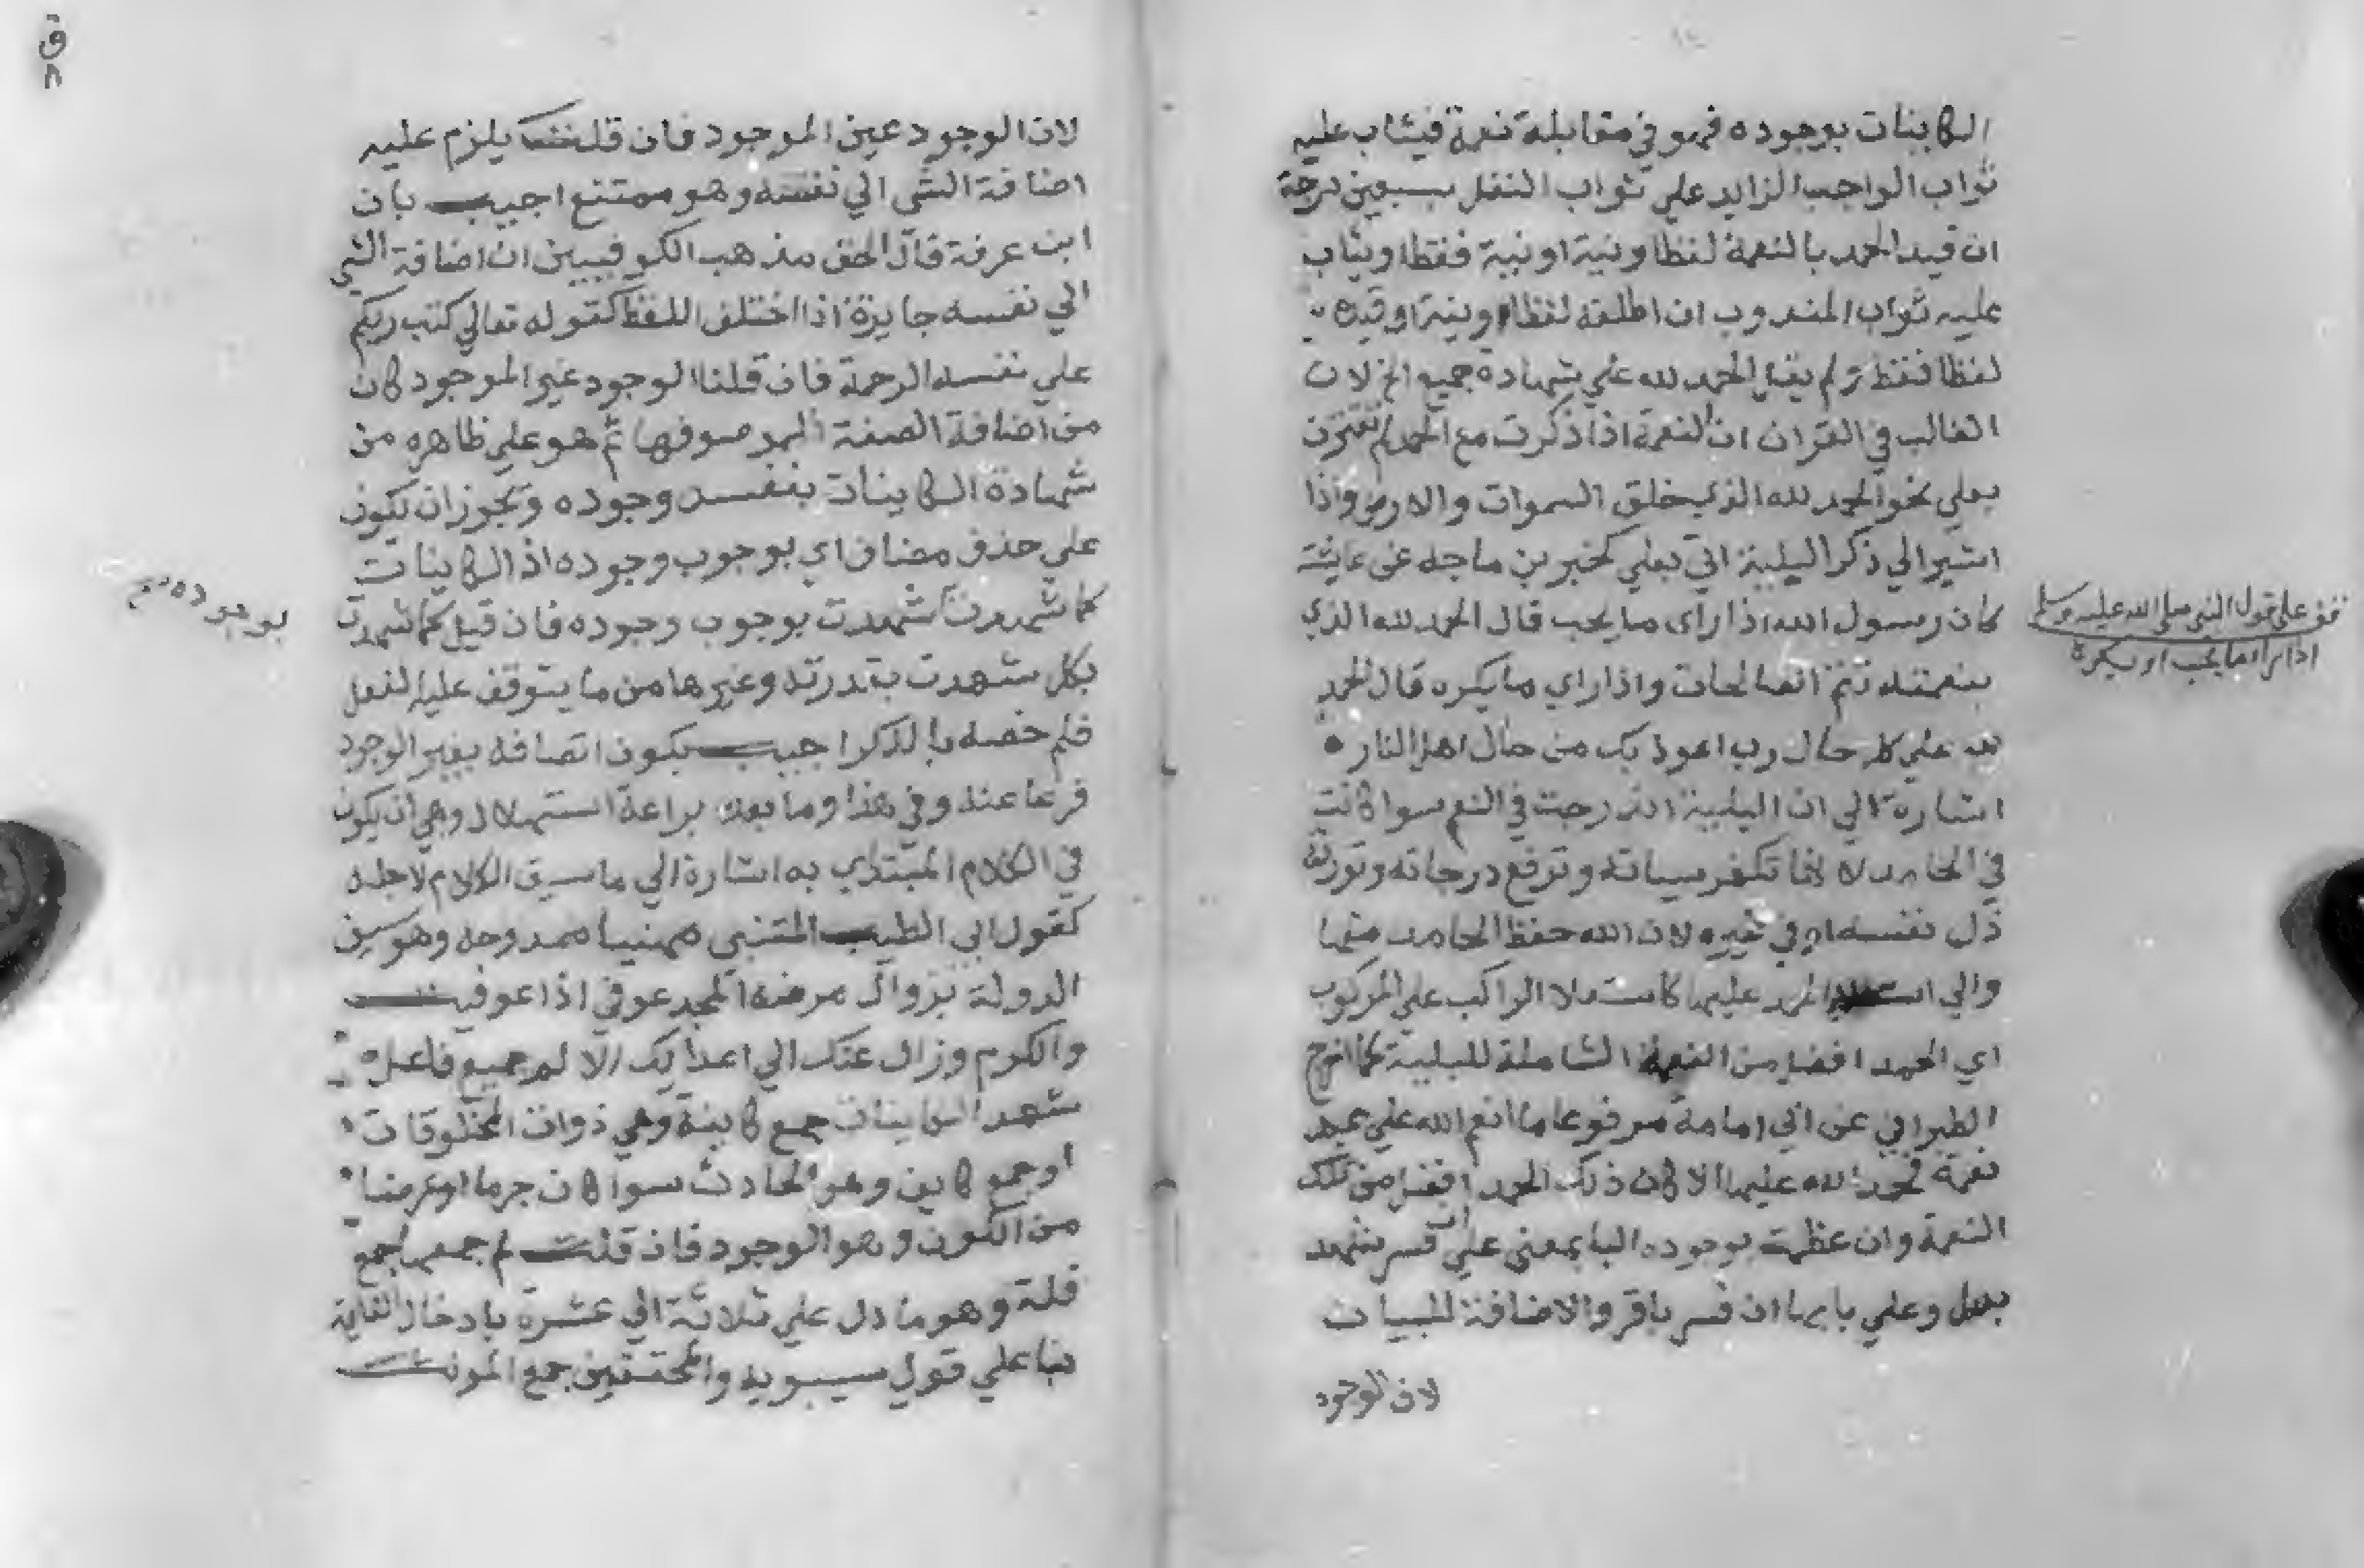 الكاينات بوجوده فهو في مقابلة نعمة فيثاب عليه
ثواب الواجب الزايد علي ثواب النفل بسبعين درجة
ان قيد الحمد بالنعمة لفظا ونية او نية فقط او يثاب
عليه ثواب المندوب ان اطلقه لفظا ونية او قيده
لفظا فقط ولم يقل الحمد لله علي شهادة جميع الخ لان
الغالب في القران ان النعمة اذا ذكرت مع الحمد لم تقترن
بعلي نحو الحمد لله الذي خلق السموات والارض واذا
اشير الي ذكر البلية اتي بعلي كخبر بن ماجه عن عايشة
كان رسول الله اذا راى ما يحب قال الحمد لله الذي
بنعمته تتم الصالحات واذا راي ما يكره قال الحمد
لله علي كل حال رب اعوذ بك من حال اهل النار
اشارة الي ان البلية اندرجت في النعم سوا كانت
في الحامد لانها تكفر سياته وترفع درجاته وتورثه
ذل نفسه او في غيره لان الله حفظ الحامد منها
والي الحمد عليها كاستعلا الراكب علي المركوب
اي الحمد افضل من النعمة الشاملة للبلية كما اخرج
الطبراني عن ابي امامة مرفوعا ما انعم الله علي عبد
نعمة فحمد الله عليها الا كان ذلك الحمد افضل من تلك
النعمة وان عظمت بوجوده البا بمعني علي ان فسر شهد
بدل وعلي بابها ان فسر باقر والاضافة للبيان
لان الوجود
تقف علي قول النبي صلي الله عليه وسلم
اذا راى ما يحب او يكره
ق
٨
لان الوجود عين الموجود فان قلت يلزم عليه
اضافة الشي الي نفسه وهو ممتنع اجيب بان
ابن عرفة قال الحق مذهب الكوفيين ان اضافة الشي
الي نفسه جايزة اذا اختلف اللفظ كقوله تعالي كتب ربكم
علي نفسه الرحمة فان قلنا الوجود غير الموجود كان
من اضافة الصفة الموصوفها ثم هو علي ظاهره من
شهادة الكاينات بنفس وجوده ويجوز ان تكون
علي حذف مضاف اي بوجوب وجوده اذ الكاينات
كما شهدت شهدت بوجوب وجوده فان قيل كما شهدت
بوجوده
بكل شهدت بقدرته وغيرها من ما يتوقف عليه الفعل
فلم خصه بالذكر اجيب بكون اتصافه بغير الوجود
فرعا عنه وفي هذا وما بعده براعة استهلال وهي ان يكون
في الكلام المبتدي به اشارة الي ما سيق الكلام لاجله
كقول ابي الطيب المتنبي مهنيا ممدوحه وهو سيف
الدولة بزوال مرضه المجد عوفي اذا عوفيت
والكرم وزال عنك الي اعدايك الالم جميع فاعل
شهد الكاينات جمع كاينة وهي ذوات المخلوقات
او جمع كاين وهو الحادث سوا كان جرما او عرضا
من الكون وهو الوجود فان قلت لم جمعها جمع
قلة وهو ما دل علي ثلاثة الي عشرة بادخال الغاية
بنا علي قول سيبويه والمحققين جمع المونث